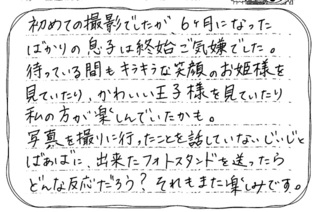 初めての撮影でしたが、6ヶ月になった
ばかりの息子は終始ご気嫌でした。
待っている間もキラキラな笑顔のお姫様を
見ていたり、かわいい王子様を見ていたり
私の方が楽しんでいたかも。
写真を撮りに行ったことを話していないじいじと
ばぁばに、出来たフォトスタンドを送ったら
どんな反応だろう？それもまた楽しみです。